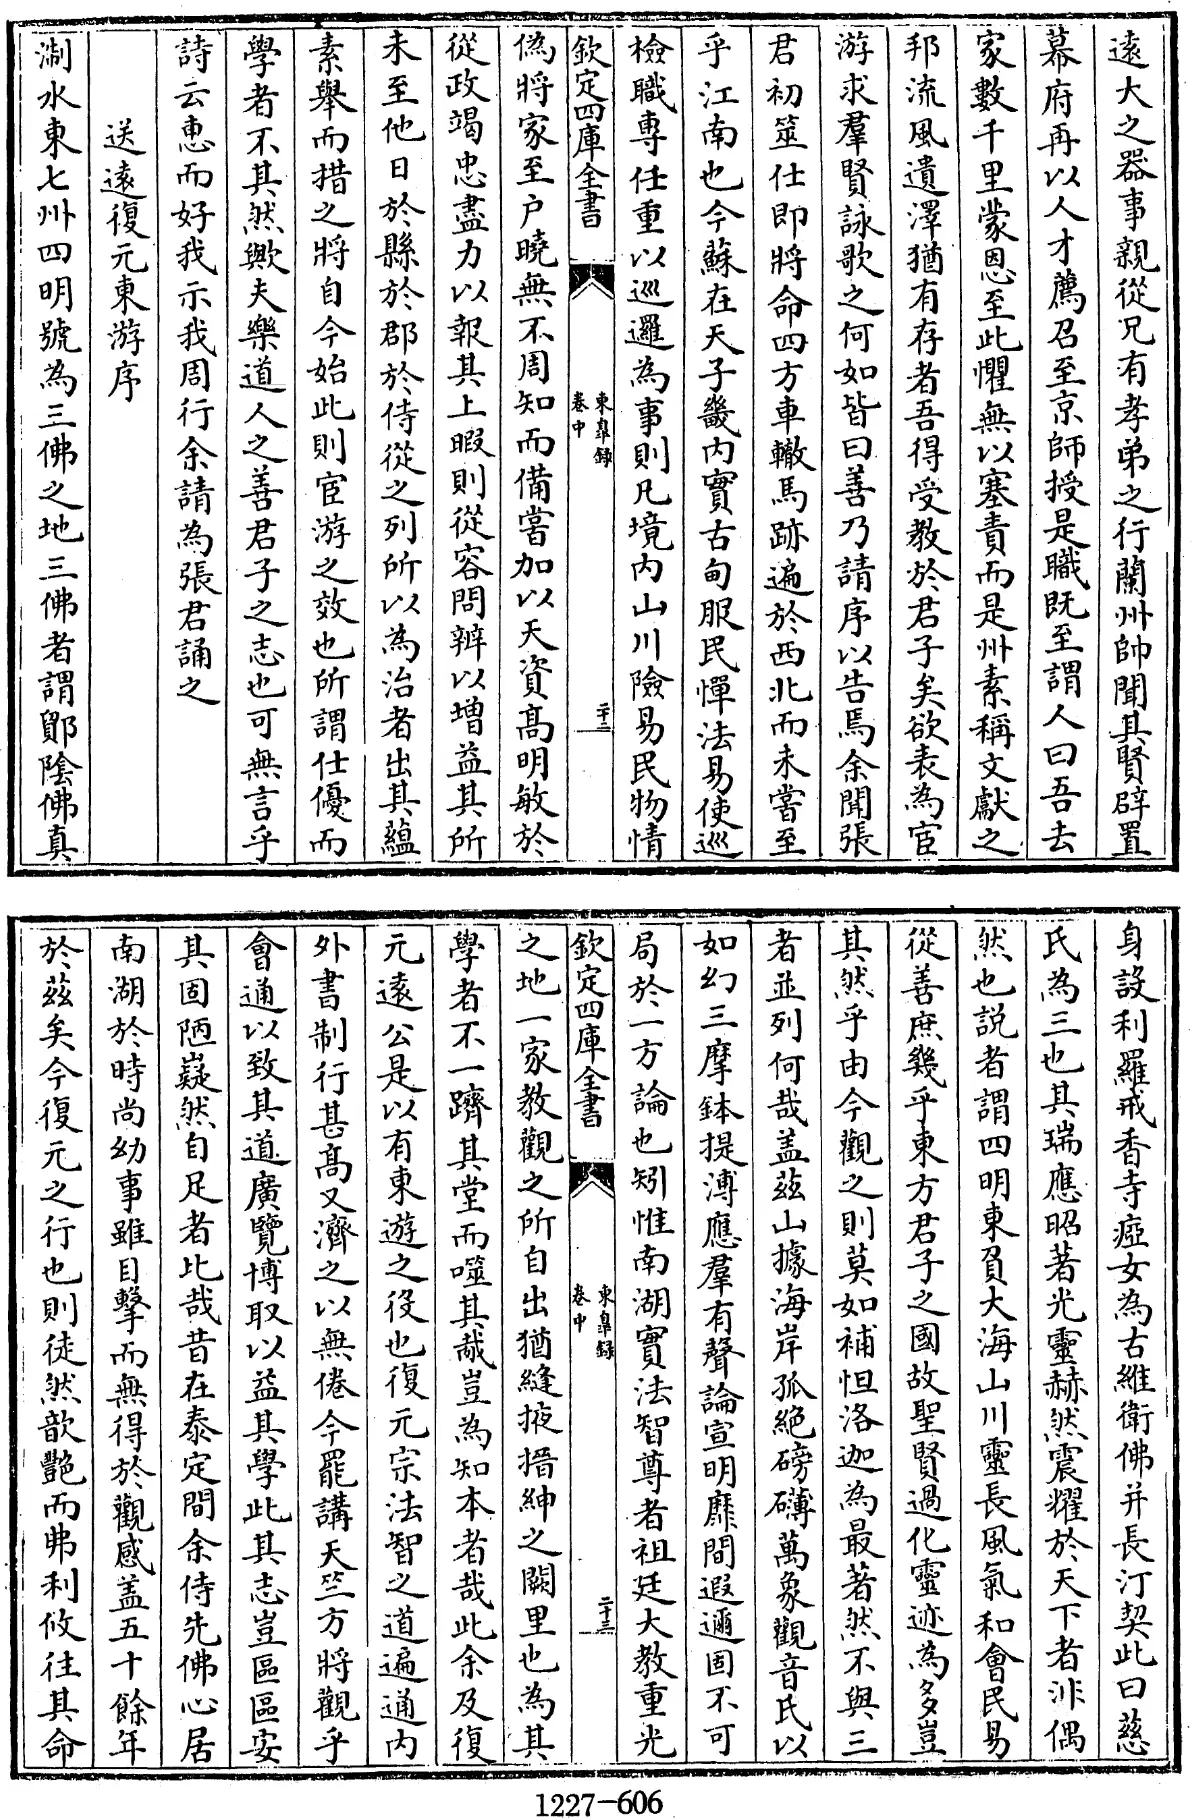 遠大之器事親從兄有孝弟之行蘭州帥聞其賢辟置
幕府再以人才薦召至京師授是職既至謂人曰吾去
家數千里蒙恩至此懼無以塞責而是州素稱文獻之
邦流風遺澤猶有存者吾得受教於君子矣欲表為宦
游求羣賢詠歌之何如皆曰善乃請序以告焉余聞張
君初筮仕即將命四方車轍馬跡遍於西北而未嘗至
乎江南也今蘇在天子畿內實古甸服民憚法易使巡
檢職專任重以巡邏為事則凡境內山川險易民物情
欽定四庫全書
東臯録
卷中
二十二
偽將家至户曉無不周知而備嘗加以天資髙明敏於
從政竭忠盡力以報其上暇則從容問辨以增益其所
未至他日於縣於郡於侍從之列所以為治者出其藴
素舉而措之將自今始此則宦游之效也所謂仕優而
學者不其然歟夫樂道人之善君子之志也可無言乎
詩云惠而好我示我周行余請為張君誦之
送遠復元東游序
淛水東七州四明號為三佛之地三佛者謂鄮隂佛真
身設利羅戒香寺瘂女為古維衛佛并長汀契此曰慈
氏為三也其瑞應昭著光靈赫然震耀於天下者非偶
然也説者謂四明東負大海山川靈長風氣和會民易
從善庶幾乎東方君子之國故聖賢過化靈迹為多豈
其然乎由今觀之則莫如補怛洛迦為最著然不與三
者並列何哉盖兹山據海岸孤絶磅礴萬象觀音氏以
如幻三摩鉢提溥應羣有聲論宣明靡間遐邇固不可
局於一方論也矧惟南湖實法智尊者祖廷大教重光
欽定四庫全書
東臯録
卷中
二十三
之地一家教觀之所自出猶縫掖搢紳之闕里也為其
學者不一躋其堂而嚌其胾豈為知本者哉此余及復
元遠公是以有東遊之役也復元宗法智之道遍通内
外書制行甚髙又濟之以無倦今罷講天竺方將觀乎
會通以致其道廣覽博取以益其學此其志豈區區安
其固陋嶷然自足者比哉昔在泰定間余侍先佛心居
南湖於時尚幼事雖目擊而無得於觀感盖五十餘年
於兹矣今復元之行也則徒然歆艷而弗利攸往其命
1227-606